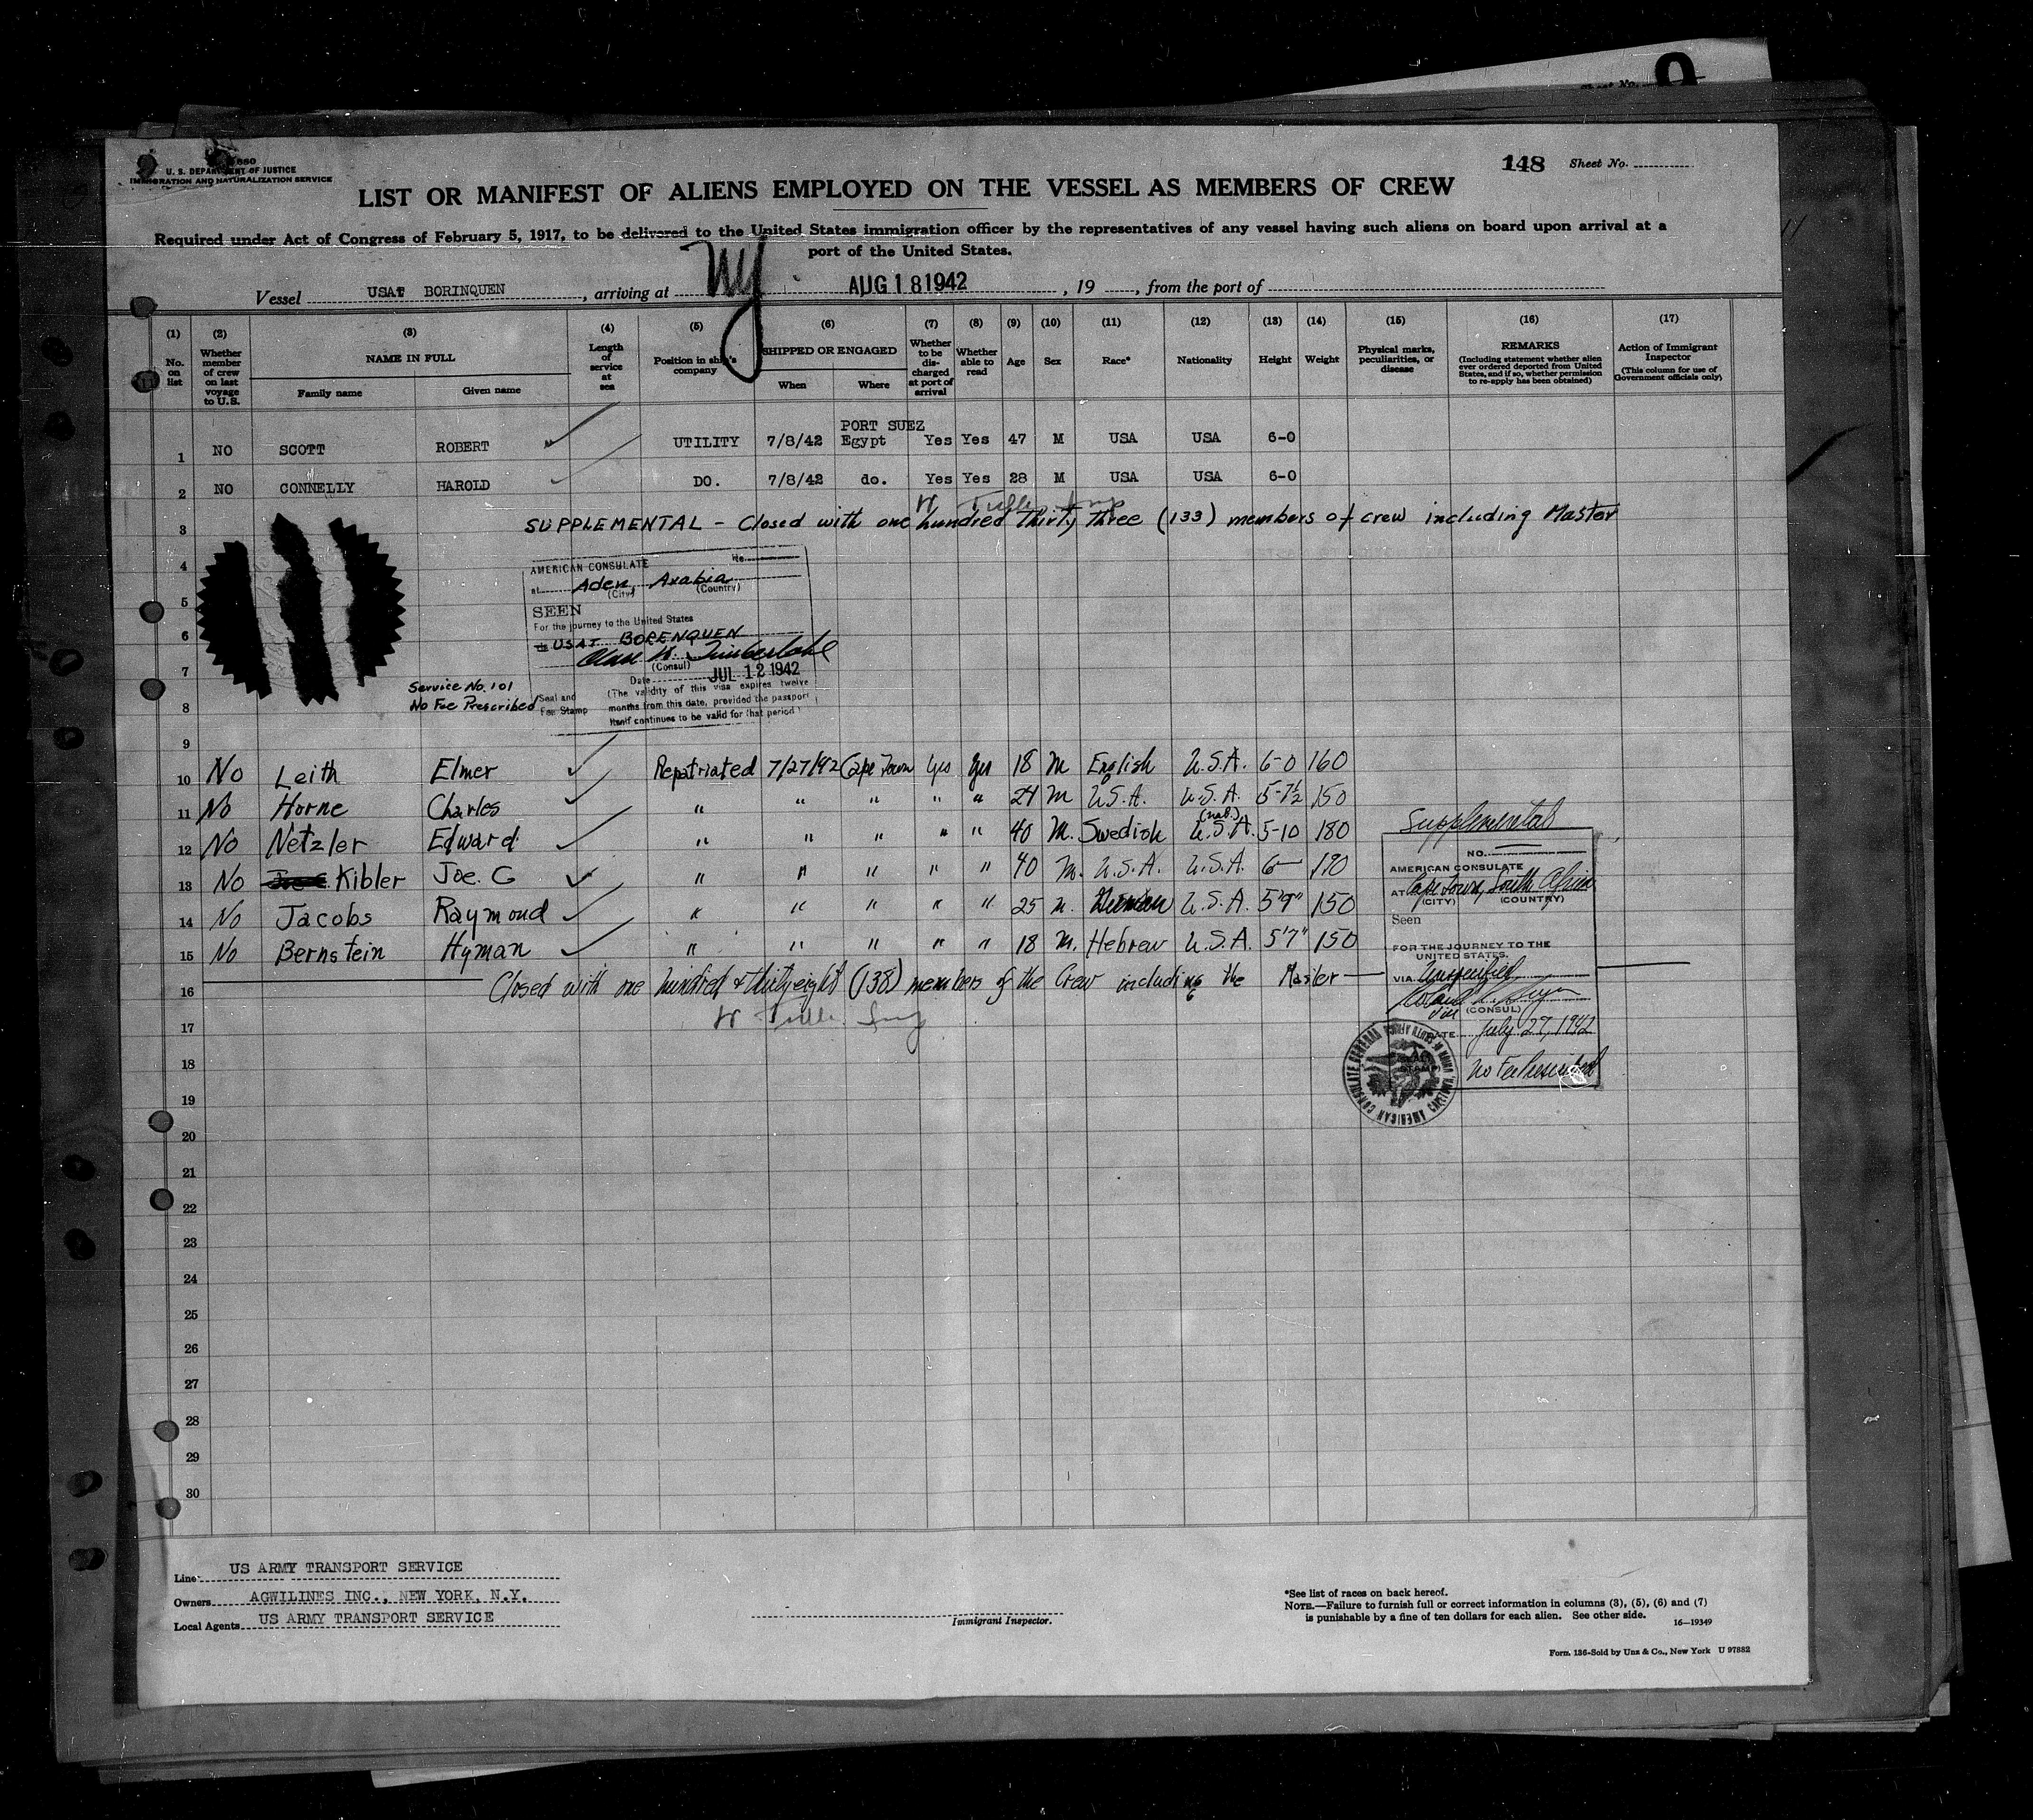 Sheet No. 9
880
U. S. DEPARTMENT OF JUSTICE
IMMIGRATION AND NATURALIZATION SERVICE
148 Sheet No.
LIST OR MANIFEST OF ALIENS EMPLOYED ON THE VESSEL AS MEMBERS OF CREW
Required under Act of Congress of February 5, 1917, to be delivered to the United States immigration officer by the representatives of any vessel having such aliens on board upon arrival at a
port of the United States.
11
Vessel USAT BORINQUEN, arriving at NY AUG 18 1942, 19, from the port of
(1) (2) (3) (4) (5) (6) (7) (8) (9) (10) (11) (12) (13) (14) (15) (16) (17)
No. on list
Whether member of crew on last voyage to U.S.
NAME IN FULL
Family name Given name
Length of service at sea
Position in ship's company
SHIPPED OR ENGAGED
When Where
Whether to be discharged at port of arrival
Whether able to read
Age Sex Race* Nationality Height Weight
Physical marks, peculiarities, or disease
REMARKS
(Including statement whether alien ever ordered deported from United States, and if so, whether permission to re-apply has been obtained)
Action of Immigrant Inspector
(This column for use of Government officials only)
1 NO SCOTT ROBERT UTILITY 7/8/42 PORT SUEZ Egypt Yes Yes 47 M USA USA 6-0
2 NO CONNELLY HAROLD DO. 7/8/42 do. Yes Yes 28 M USA USA 6-0
3 SUPPLEMENTAL - Closed with one hundred thirty three (133) members of crew including Master
4
5
6
7
8
9
AMERICAN CONSULATE No.
at Aden, Arabia
(City) (Country)
SEEN
For the journey to the United States
USAT BORENQUEN
(Consul)
Date JUL 12 1942
(The validity of this visa expires twelve
months from this date, provided the passport
itself continues to be valid for that period)
Seal and
Fee Stamp
Service No. 101
No Fee Prescribed
10 No Leith Elmer Repatriated 7/27/42 Cape Town Yes Yes 18 M English U.S.A. 6-0 160
11 No Horne Charles " " " " " 24 M U.S.A. U.S.A. 5-7½ 150
12 No Netzler Edward " " " " " 40 M. Swedish (nat.) U.S.A. 5-10 180
13 No Kibler Joe. C " " " " " 40 M. U.S.A. U.S.A. 6- 190
14 No Jacobs Raymond " " " " " 25 M. U.S.A. 5'9" 150
15 No Bernstein Hyman " " " " " 18 M. Hebrew U.S.A. 5'7" 150
16 Closed with one hundred & thirty eight (138) members of the Crew including the Master
Supplemental
NO.
AMERICAN CONSULATE
AT Cape Town, South Africa
(CITY) (COUNTRY)
Seen
FOR THE JOURNEY TO THE
UNITED STATES.
VIA Unspecified
(CONSUL)
DATE July 27, 1942
No Fee Prescribed
17
18
19
20
21
22
23
24
25
26
27
28
29
30
Line US ARMY TRANSPORT SERVICE
Owners AGWILINES INC., NEW YORK, N.Y.
Local Agents US ARMY TRANSPORT SERVICE
Immigrant Inspector.
*See list of races on back hereof.
NOTE.—Failure to furnish full or correct information in columns (3), (5), (6) and (7)
is punishable by a fine of ten dollars for each alien. See other side.
16—19349
Form. 136-Sold by Unz & Co., New York U 97882